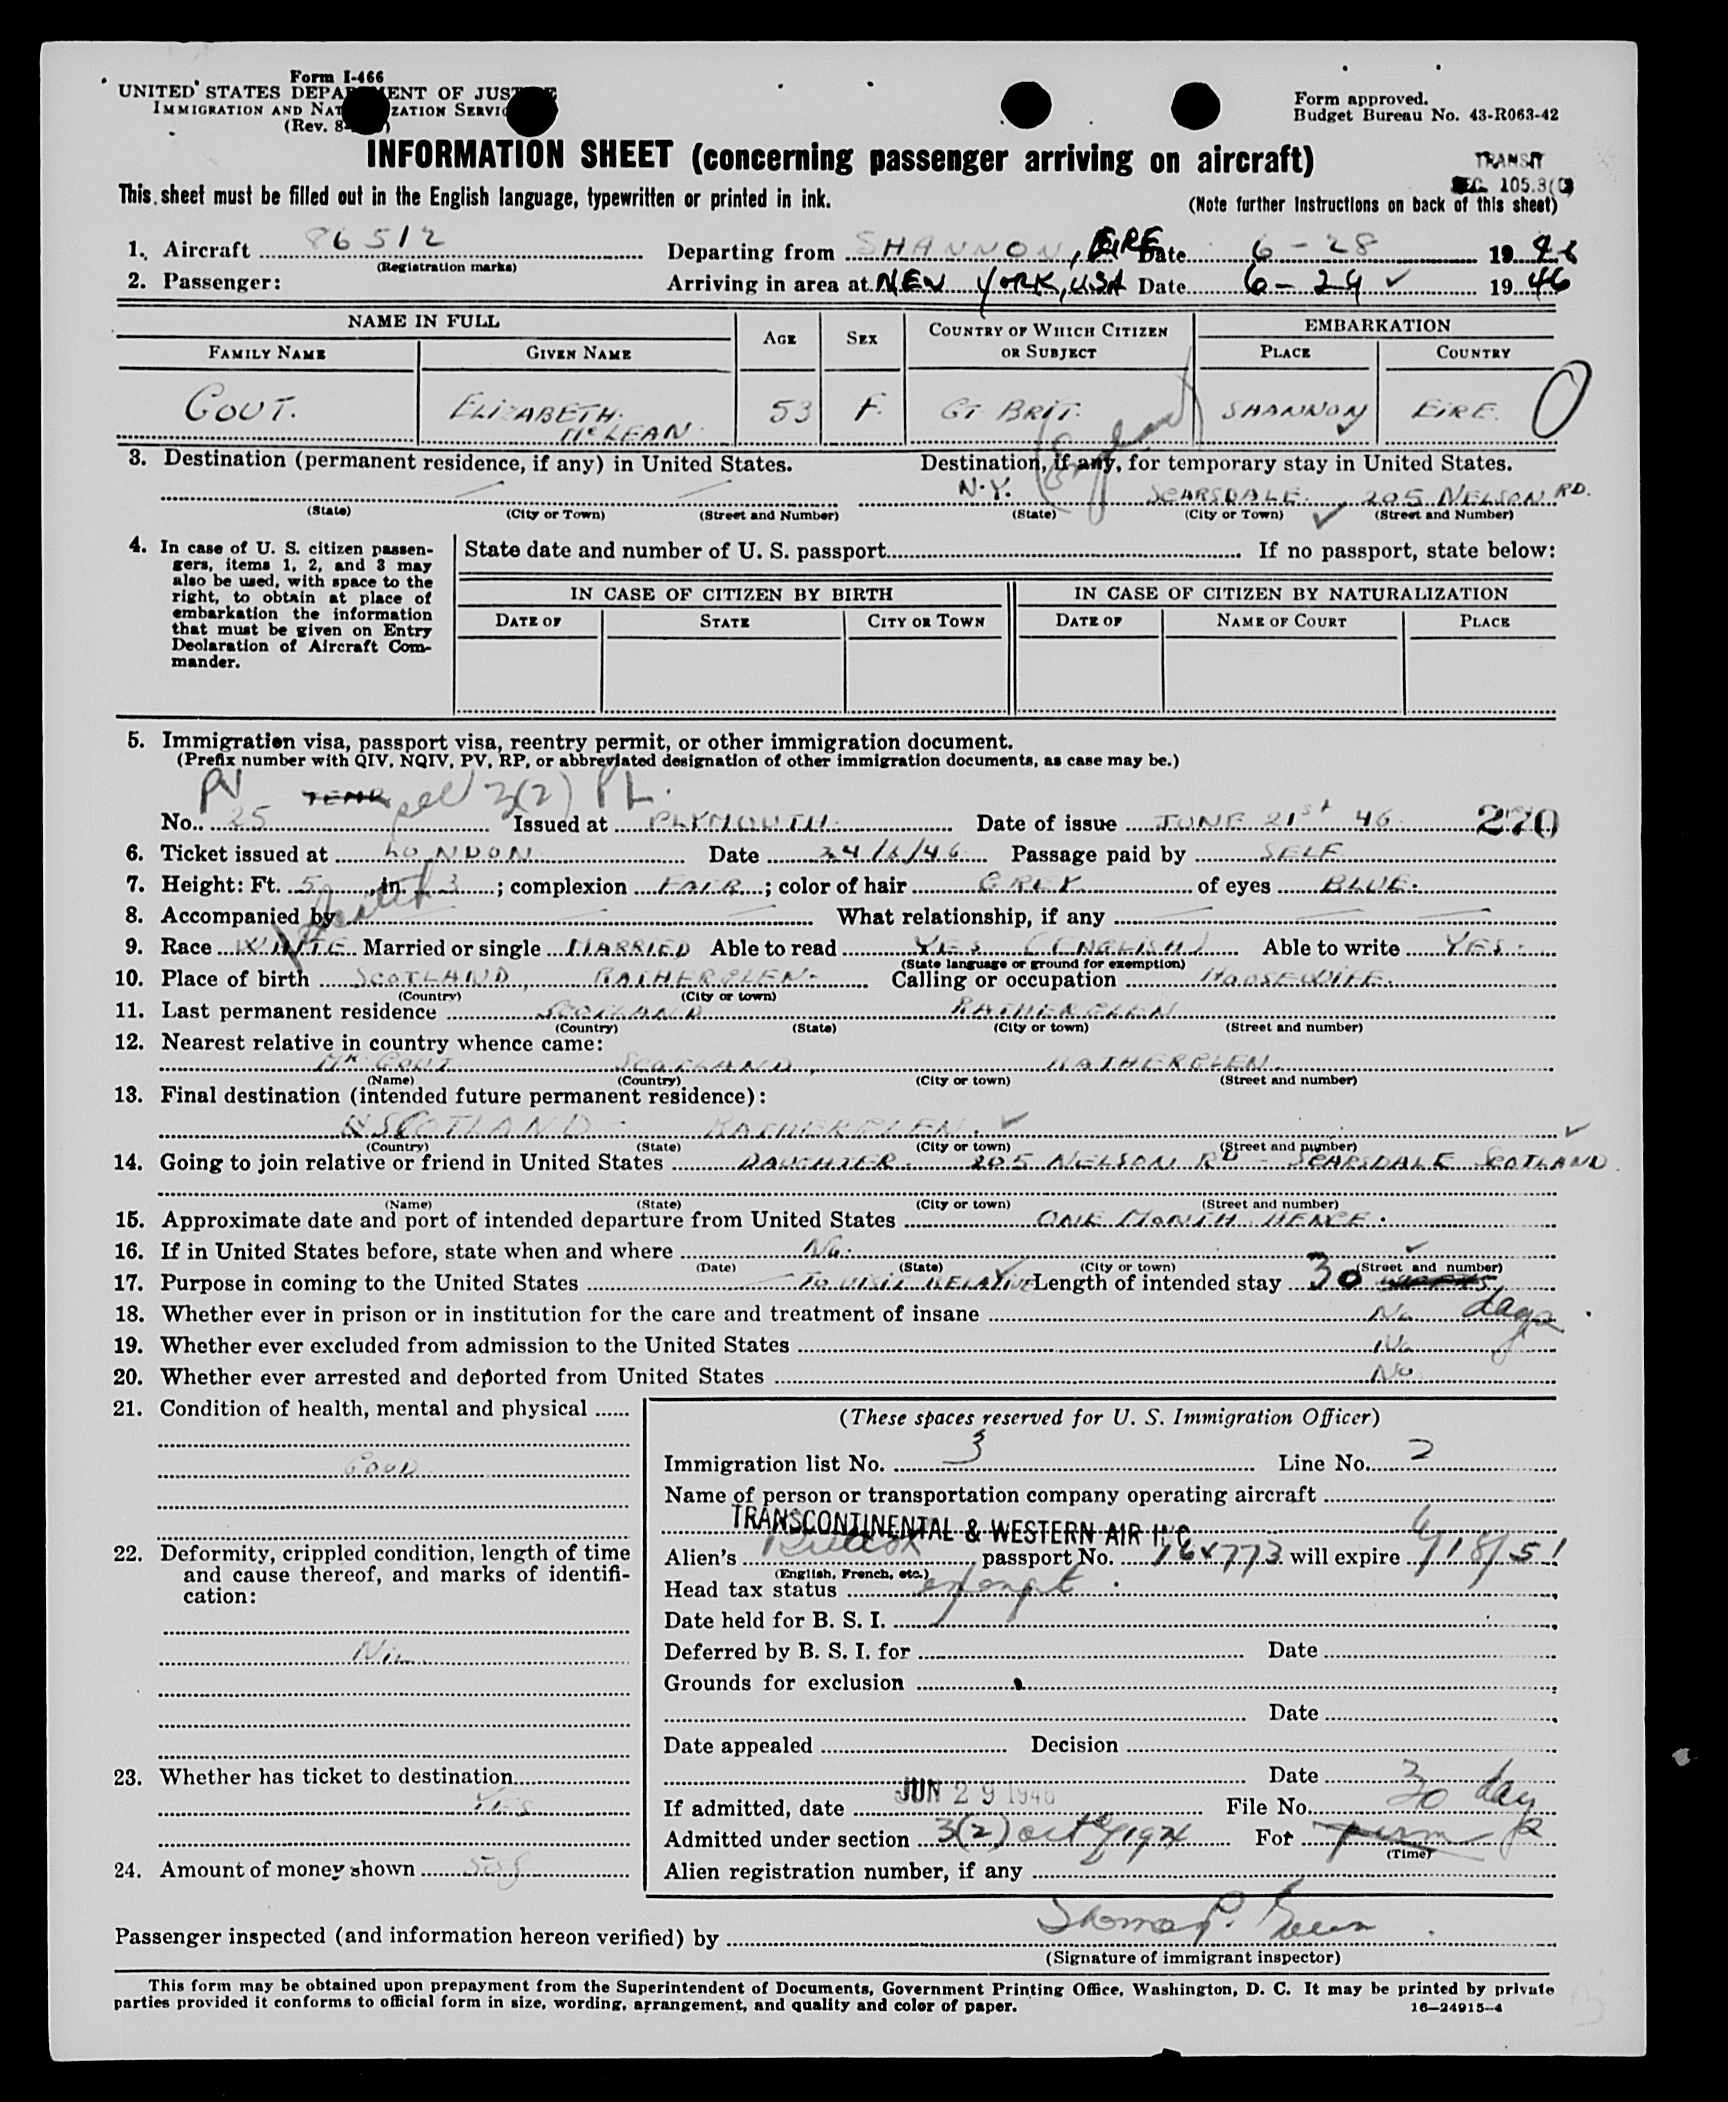 Form I-466
UNITED STATES DEPARTMENT OF JUSTICE
IMMIGRATION AND NATURALIZATION SERVICE
(Rev. 8-
Form approved.
Budget Bureau No. 43-R063-42
INFORMATION SHEET (concerning passenger arriving on aircraft)
TRANSIT
SEC. 105.3(C)
This sheet must be filled out in the English language, typewritten or printed in ink.
(Note further instructions on back of this sheet)
1. Aircraft 86512 Departing from SHANNON, EIRE Date 6-28 1946
(Registration marks)
2. Passenger: Arriving in area at NEW YORK, USA Date 6-29 1946
NAME IN FULL AGE SEX COUNTRY OF WHICH CITIZEN OR SUBJECT EMBARKATION
FAMILY NAME GIVEN NAME PLACE COUNTRY
GOUT. ELIZABETH McLEAN 53 F. GT BRIT. (England) SHANNON EIRE. O
3. Destination (permanent residence, if any) in United States. Destination, if any, for temporary stay in United States.
N.Y. SCARSDALE, 205 NELSON RD.
(State) (City or Town) (Street and Number) (State) (City or Town) (Street and Number)
4. In case of U. S. citizen passengers, items 1, 2, and 3 may also be used, with space to the right, to obtain at place of embarkation the information that must be given on Entry Declaration of Aircraft Commander.
State date and number of U. S. passport If no passport, state below:
IN CASE OF CITIZEN BY BIRTH IN CASE OF CITIZEN BY NATURALIZATION
DATE OF STATE CITY OR TOWN DATE OF NAME OF COURT PLACE
5. Immigration visa, passport visa, reentry permit, or other immigration document.
(Prefix number with QIV, NQIV, PV, RP, or abbreviated designation of other immigration documents, as case may be.)
PV 3(2) PL.
No. 25 Issued at PLYMOUTH Date of issue JUNE 21st 46 270
6. Ticket issued at LONDON Date 24/6/46 Passage paid by SELF
7. Height: Ft. 5, in. 3; complexion FAIR; color of hair GREY of eyes BLUE.
8. Accompanied by What relationship, if any
9. Race WHITE Married or single MARRIED Able to read YES (ENGLISH) Able to write YES.
(State language or ground for exemption)
10. Place of birth SCOTLAND, RATHERGLEN. Calling or occupation HOUSEWIFE.
(Country) (City or town)
11. Last permanent residence SCOTLAND RATHERGLEN
(Country) (State) (City or town) (Street and number)
12. Nearest relative in country whence came:
MR GOUT SCOTLAND, RATHERGLEN.
(Name) (Country) (City or town) (Street and number)
13. Final destination (intended future permanent residence):
SCOTLAND - RATHERGLEN.
(Country) (State) (City or town) (Street and number)
14. Going to join relative or friend in United States DAUGHTER. 205 NELSON RD - SCARSDALE SCOTLAND
(Name) (State) (City or town) (Street and number)
15. Approximate date and port of intended departure from United States ONE MONTH HENCE.
16. If in United States before, state when and where No.
(Date) (State) (City or town) (Street and number)
17. Purpose in coming to the United States TO VISIT RELATIVE Length of intended stay 30 days
18. Whether ever in prison or in institution for the care and treatment of insane No
19. Whether ever excluded from admission to the United States No
20. Whether ever arrested and deported from United States No
21. Condition of health, mental and physical
GOOD
22. Deformity, crippled condition, length of time and cause thereof, and marks of identification:
23. Whether has ticket to destination
YES
24. Amount of money shown
(These spaces reserved for U. S. Immigration Officer)
Immigration list No. 3 Line No. 2
Name of person or transportation company operating aircraft
TRANSCONTINENTAL & WESTERN AIR INC.
Alien's British passport No. will expire 6/18/51
(English, French, etc.)
Head tax status exempt
Date held for B. S. I.
Deferred by B. S. I. for Date
Grounds for exclusion
Date
Date appealed Decision
Date
If admitted, date JUN 29 1946 File No. 30 day
Admitted under section 3(2) act of 1924 For perm
(Time)
Alien registration number, if any
Passenger inspected (and information hereon verified) by Thomas P.
(Signature of immigrant inspector)
This form may be obtained upon prepayment from the Superintendent of Documents, Government Printing Office, Washington, D. C. It may be printed by private
parties provided it conforms to official form in size, wording, arrangement, and quality and color of paper. 16—24915-4